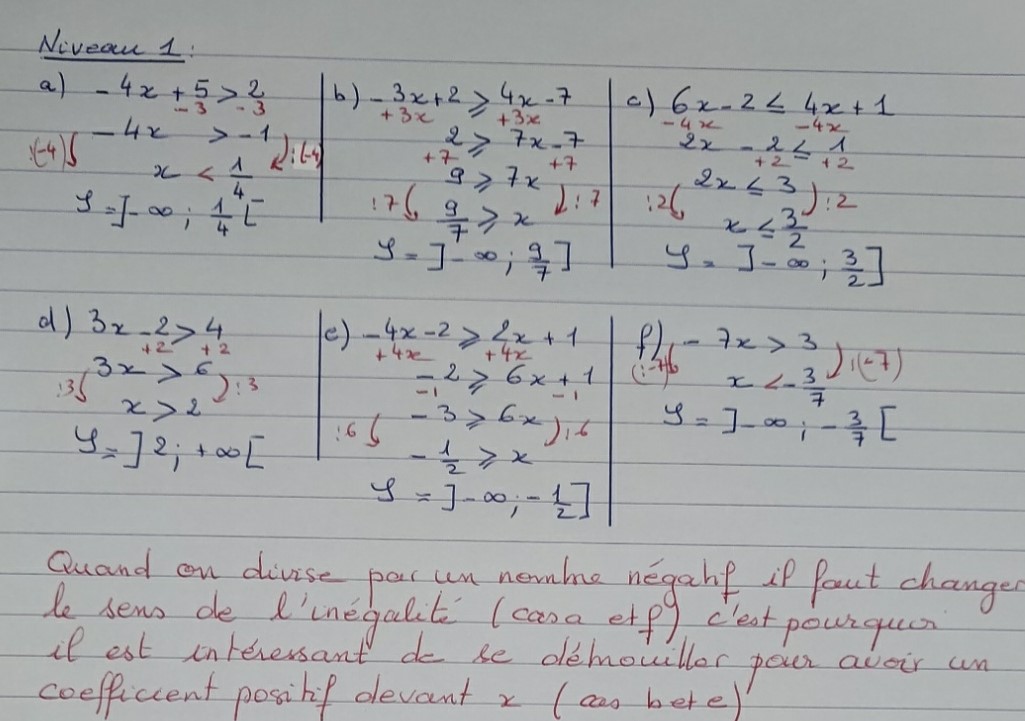 Niveau 1 :
a) - 4x + 5 > 2
- 3 - 3
- 4x > -1
:(-4) :(-4)
x < 1/4
S = ]-∞ ; 1/4 [
b) - 3x + 2 ⩾ 4x - 7
+3x +3x
2 ⩾ 7x - 7
+7 +7
9 ⩾ 7x
:7 :7
9/7 ⩾ x
S = ]-∞ ; 9/7 ]
c) 6x - 2 ≤ 4x + 1
-4x -4x
2x - 2 ≤ 1
+2 +2
2x ≤ 3
:2 :2
x ≤ 3/2
S = ]-∞ ; 3/2 ]
d) 3x - 2 > 4
+2 +2
3x > 6
:3 :3
x > 2
S = ] 2 ; +∞ [
e) - 4x - 2 ⩾ 2x + 1
+4x +4x
- 2 ⩾ 6x + 1
-1 -1
- 3 ⩾ 6x
:6 :6
- 1/2 ⩾ x
S = ]-∞ ; - 1/2 ]
f) - 7x > 3
(:-7) :(-7)
x < - 3/7
S = ]-∞ ; - 3/7 [
Quand on divise par un nombre négatif il faut changer
le sens de l'inégalité (cas a et f) c'est pourquoi
il est intéressant de se débrouiller pour avoir un
coefficient positif devant x (cas b et e)